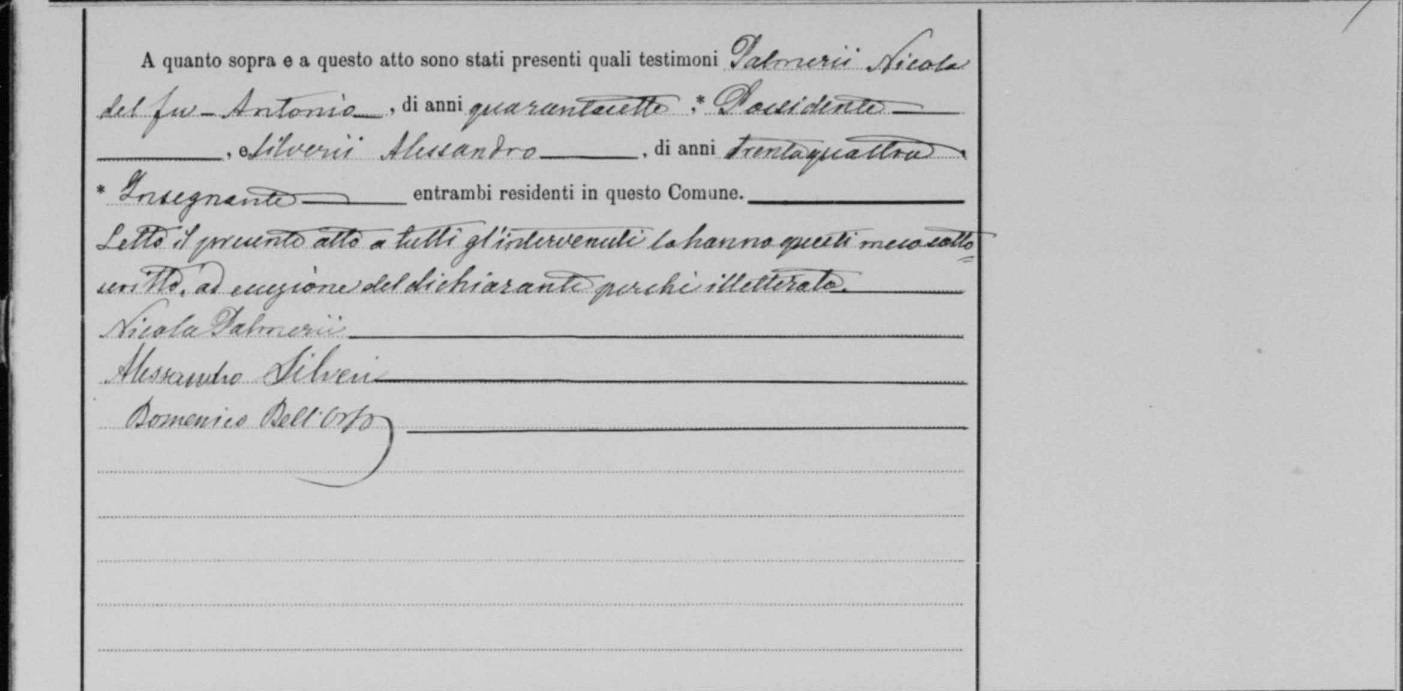 A quanto sopra e a questo atto sono stati presenti quali testimoni Palmerii Nicola
del fu Antonio, di anni quarantasette, * Possidente
, e Silverii Alessandro, di anni trentaquattro,
* Insegnante entrambi residenti in questo Comune.
Letto il presente atto a tutti gl'intervenuti lo hanno questi meco sotto=
scritto, ad eccezione del dichiarante perchè illetterato.
Nicola Palmerii
Alessandro Silveri
Domenico Dell'Orso